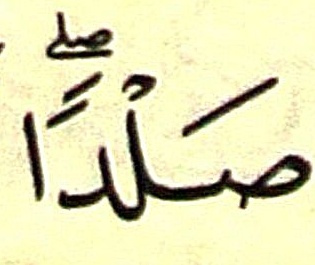 صَلْدًاۖ